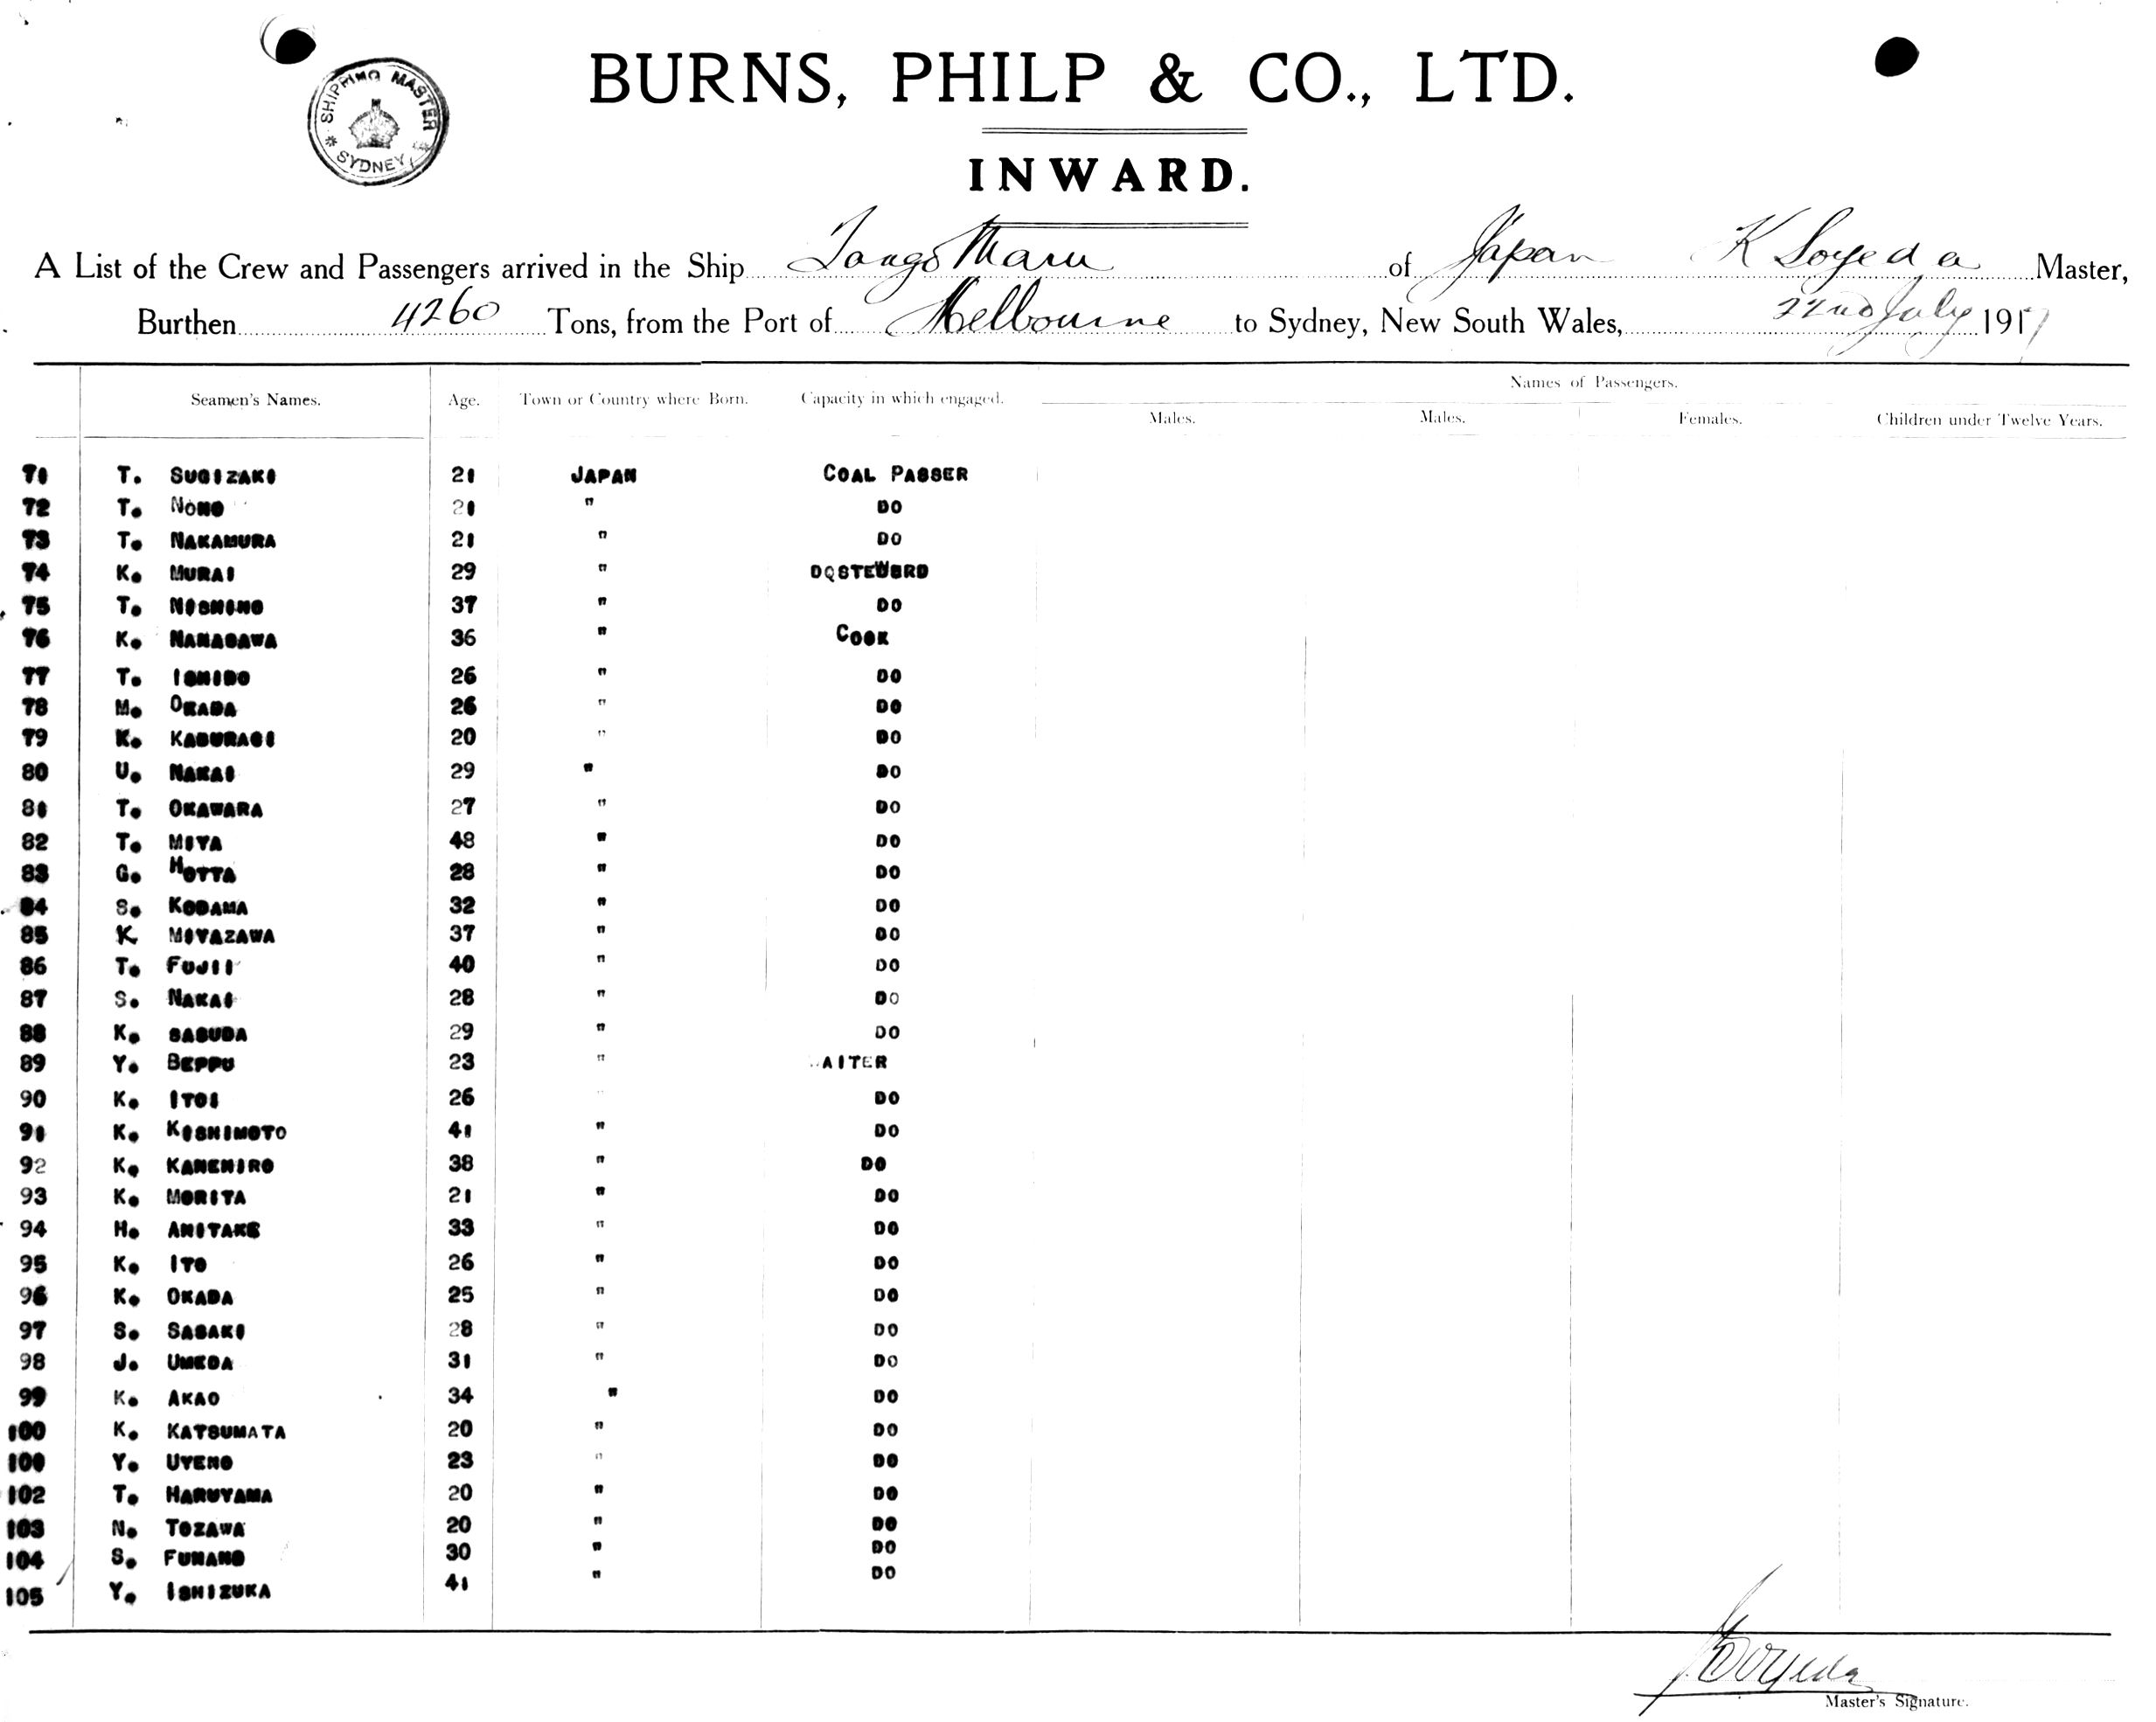 SHIPPING MASTER
SYDNEY
BURNS, PHILP & CO., LTD.
INWARD.
A List of the Crew and Passengers arrived in the Ship Tango Maru of Japan K Soyeda Master,
Burthen 4260 Tons, from the Port of Melbourne to Sydney, New South Wales, 22nd July 1917
Seamen's Names. Age. Town or Country where Born. Capacity in which engaged. Names of Passengers.
Males. Males. Females. Children under Twelve Years.
71 T. SUGIZAKI 21 JAPAN COAL PASSER
72 T. NONO 21 " DO
73 T. NAKAMURA 21 " DO
74 K. MURAI 29 "
75 T. NISHINO 37 " DO
76 K. NANAGAWA 36 " COOK
77 T. ISHIDO 26 " DO
78 M. OKADA 26 " DO
79 K. KABURAGI 20 " DO
80 U. NAKAI 29 " DO
81 T. OKAWARA 27 " DO
82 T. MIYA 48 " DO
83 G. HOTTA 28 " DO
84 S. KODAMA 32 " DO
85 K MIYAZAWA 37 " DO
86 T. FUJII 40 " DO
87 S. NAKAI 28 " DO
88 K. SASUDA 29 " DO
89 Y. BEPPU 23 " AITER
90 K. ITOI 26 " DO
91 K. KISHIMOTO 41 " DO
92 K. KANEHIRO 38 " DO
93 K. MORITA 21 " DO
94 H. ANITAKE 33 " DO
95 K. ITO 26 " DO
96 K. OKADA 25 " DO
97 S. SASAKI 28 " DO
98 J. UMEDA 31 " DO
99 K. AKAO 34 " DO
100 K. KATSUMATA 20 " DO
100 Y. UYENO 23 " DO
102 T. HARUYAMA 20 " DO
103 N. TOZAWA 20 " DO
104 S. FUNANO 30 " DO
105 Y. ISHIZUKA 41 " DO
K Soyeda
Master's Signature.